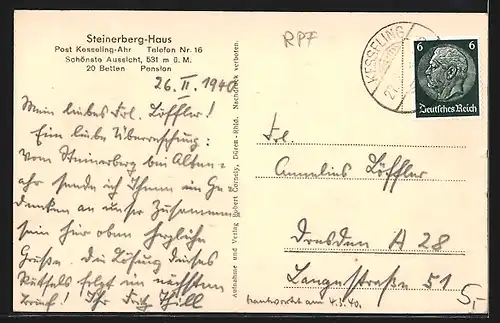 Steinerberg-Haus
Post Kesseling-Ahr Telefon Nr. 16
Schönste Aussicht, 531 m ü. M.
20 Betten Pension
26. II. 1940
Mein liebes Frl. Löffler!
Eine liebe Überraschung:
vom Steinerberg bei Alten-
ahr sende ich Ihnen im Ge-
denken an unser Zusammen-
sein hier oben herzliche
Grüße. Die Lösung dieses
Rätsels folgt im nächsten
Brief! Ihr Fritz Thill
Aufnahme und Verlag Robert Düren-Rhld. Nachdruck verboten.
RPF
KESSELING
6 6
Deutsches Reich
Frl
Annelies Löffler
Dresden A 28
Langestraße 51
beantwortet am 4.3.40.
5,-